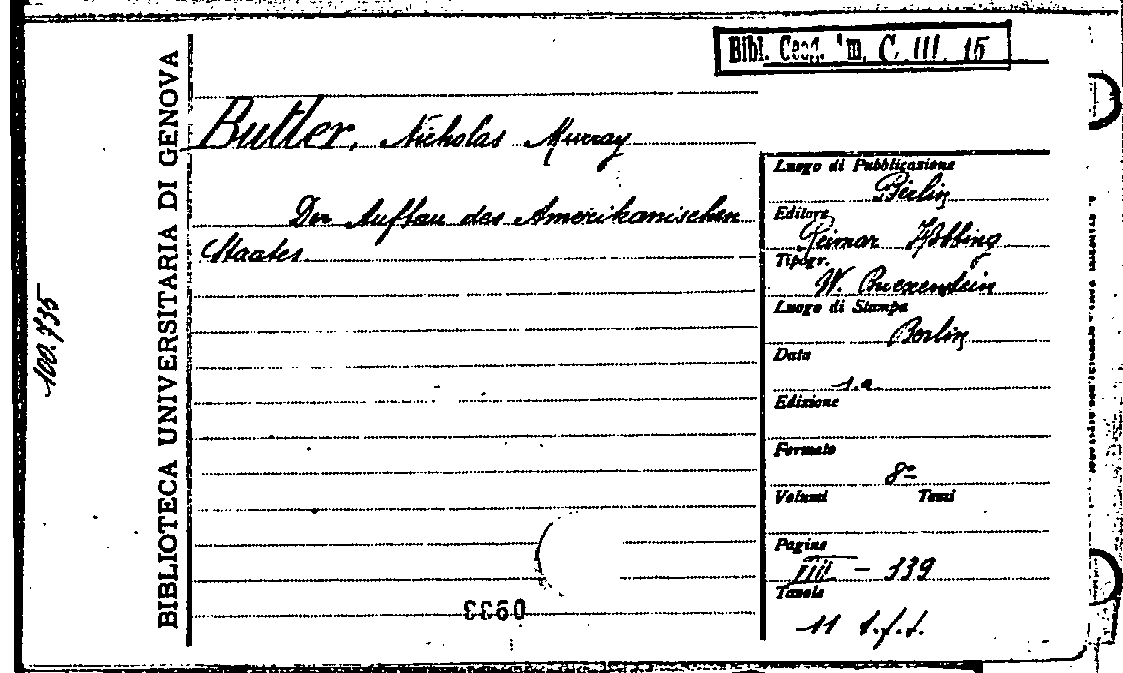 Bibl. Geog. Im. C. III. 15
BIBLIOTECA UNIVERSITARIA DI GENOVA
100.735
Butler, Nicholas Murray
Der Aufbau des Amerikanischen
Staates
Luogo di Pubblicazione
Berlin
Editore
Reimar Hobbing
Tipogr.
W. Buexenstein
Luogo di Stampa
Berlin
Data
s.a
Edizione
Formato
8º
Volumi Tomi
Pagine
VIII - 339
Tavole
11 t.f.t.
0933